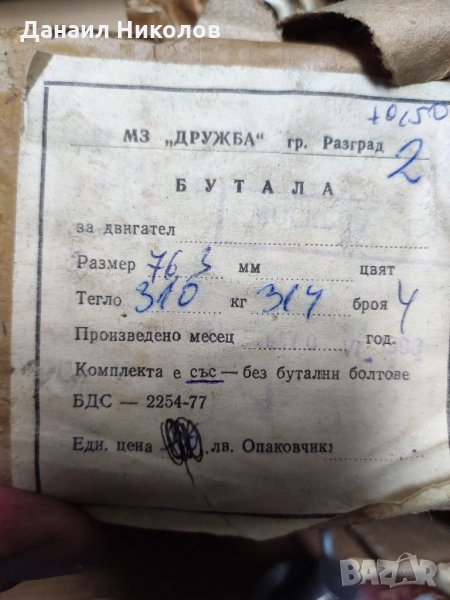 Данаил Николов
+0,50
МЗ „ДРУЖБА“ гр. Разград
2
БУТАЛА
за двигател
Размер 76,5 мм цвят
Тегло 310 кг 314 броя 4
Произведено месец год.
Комплекта е със — без бутални болтове
БДС — 2254-77
Еди. цена лв. Опаковчик:
BAZAR